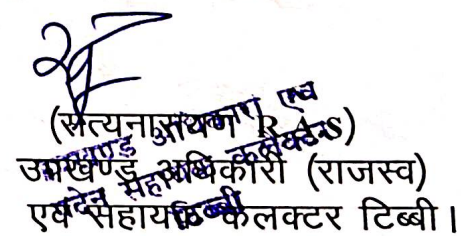 (सत्यनारायण R.A.S)
उपखण्ड अधिकारी (राजस्व)
एवं सहायक कलक्टर टिब्बी।
उपखण्ड अधिकारी एवं
पदेन सहायक कलक्टर
टिब्बी